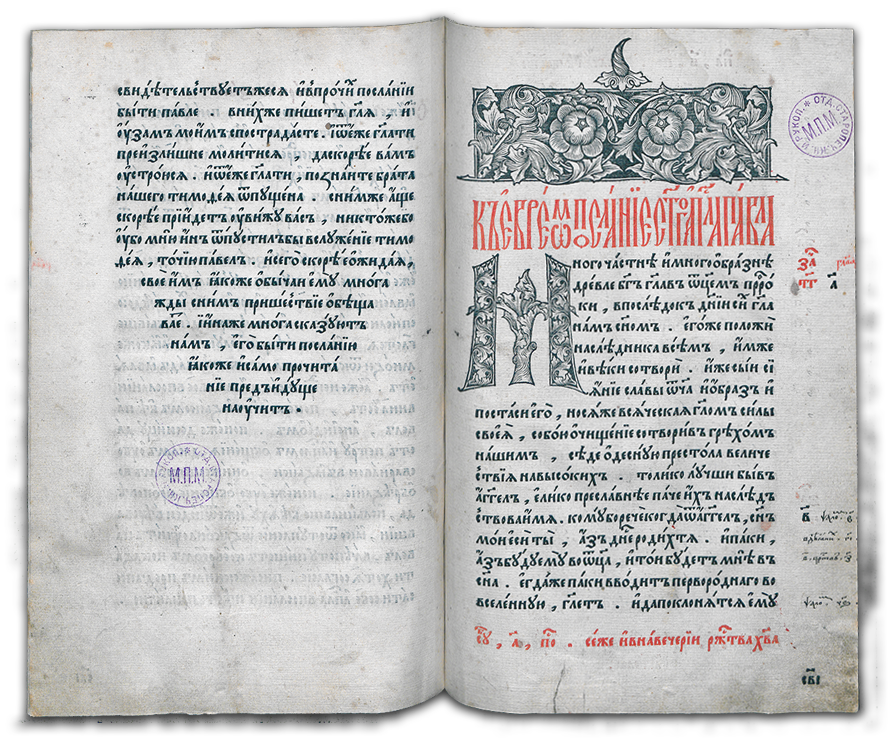 свидѣтельствуетъжеся ивпрочи посланіи
быти павле внихже пишетъ гл҃я , и
оузам моимъ спострадасте . ітѡеже гл҃ати
преизлишне молитися , даскорѣе вам
оустроюся . иѿеже гл҃ати , познаите брата
нашего тимоѳея ѿпущена . снимже аще
скорѣе прїидетъ оувижу васъ , никтожебо
оубо мню инъ ѿпустилъбы вслуженїе тимо
ѳея , точїю павелъ . исего скорѣ ѡжидая ,
своеимъ якоже обычаи ему многа
жды снимъ пришествїе обѣща
вае . ииннаже многа сказуютъ
намъ , его быти посланїю
якоже исамо прочита
нїе предъидуще
наоучитъ .
М.П.М.
СТА СТАРОПЕЧ И РУКОП.
М.П.М.
къ евреѡм посланїе ст҃го ап҃ла павла
Многочастнѣ имногообразнѣ
древле бг҃ъ глав ѿцем прⷪ҇ро
ки , впослѣдокъ дн҃и сих гл҃а
намъ сн҃ом . егоже положи
наслѣдника всѣмъ , имже
ивѣки сотвори . иже сыи сї
янїе славы ѿча иѡбразъ и
постаси его , носяже всяческая гл҃ом силы
своея , собою очищенїе сотворивъ грѣхомъ
нашимъ , сѣде одесную престола величе
ствїя навысокихъ . толико лучши бывъ
аг҃гелъ , елико преславнѣе паче ихъ наслѣдъ
ствова имя . кому бо рече когда ѿ аг҃гелъ , сн҃ъ
мои еси ты , азъ дне҇ родихтя . ипаки ,
азъ буду ему во ѿца , итои будетъ мнѣ в
сн҃а . егдаже паки вводитъ первороднаго во
вселенную , гл҃етъ . ида поклонятся ему
сеже ивнавечерїи рж҇тва хв҃а
за҇
а҃